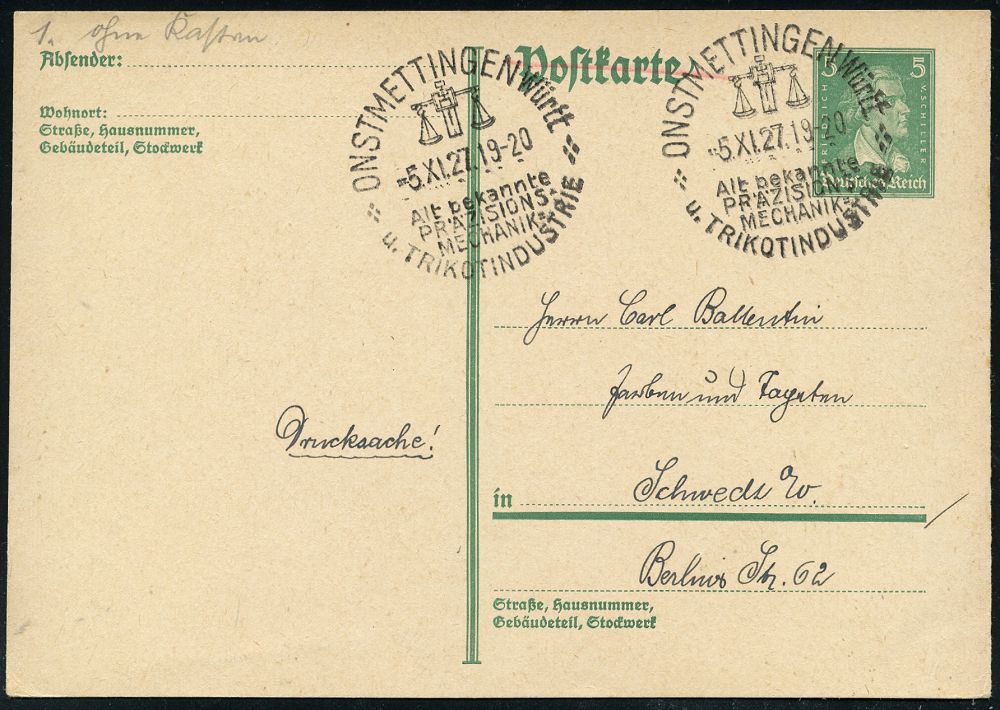 1. ohne Kasten
Absender:
Wohnort:
Straße, Hausnummer,
Gebäudeteil, Stockwerk
Postkarte
ONSTMETTINGEN Württ
-5.XI.27.19-20
Alt bekannte
PRÄZISIONS-
MECHANIK-
u. TRIKOTINDUSTRIE
ONSTMETTINGEN Württ
-5.XI.27.19-20
Alt bekannte
PRÄZISIONS-
MECHANIK-
u. TRIKOTINDUSTRIE
5 5
FRIEDRICH V. SCHILLER
Deutsches Reich
Herrn Carl Ballentin
Farben und Tapeten
Drucksache!
in Schwedt O/.
Berliner Str. 62
Straße, Hausnummer,
Gebäudeteil, Stockwerk